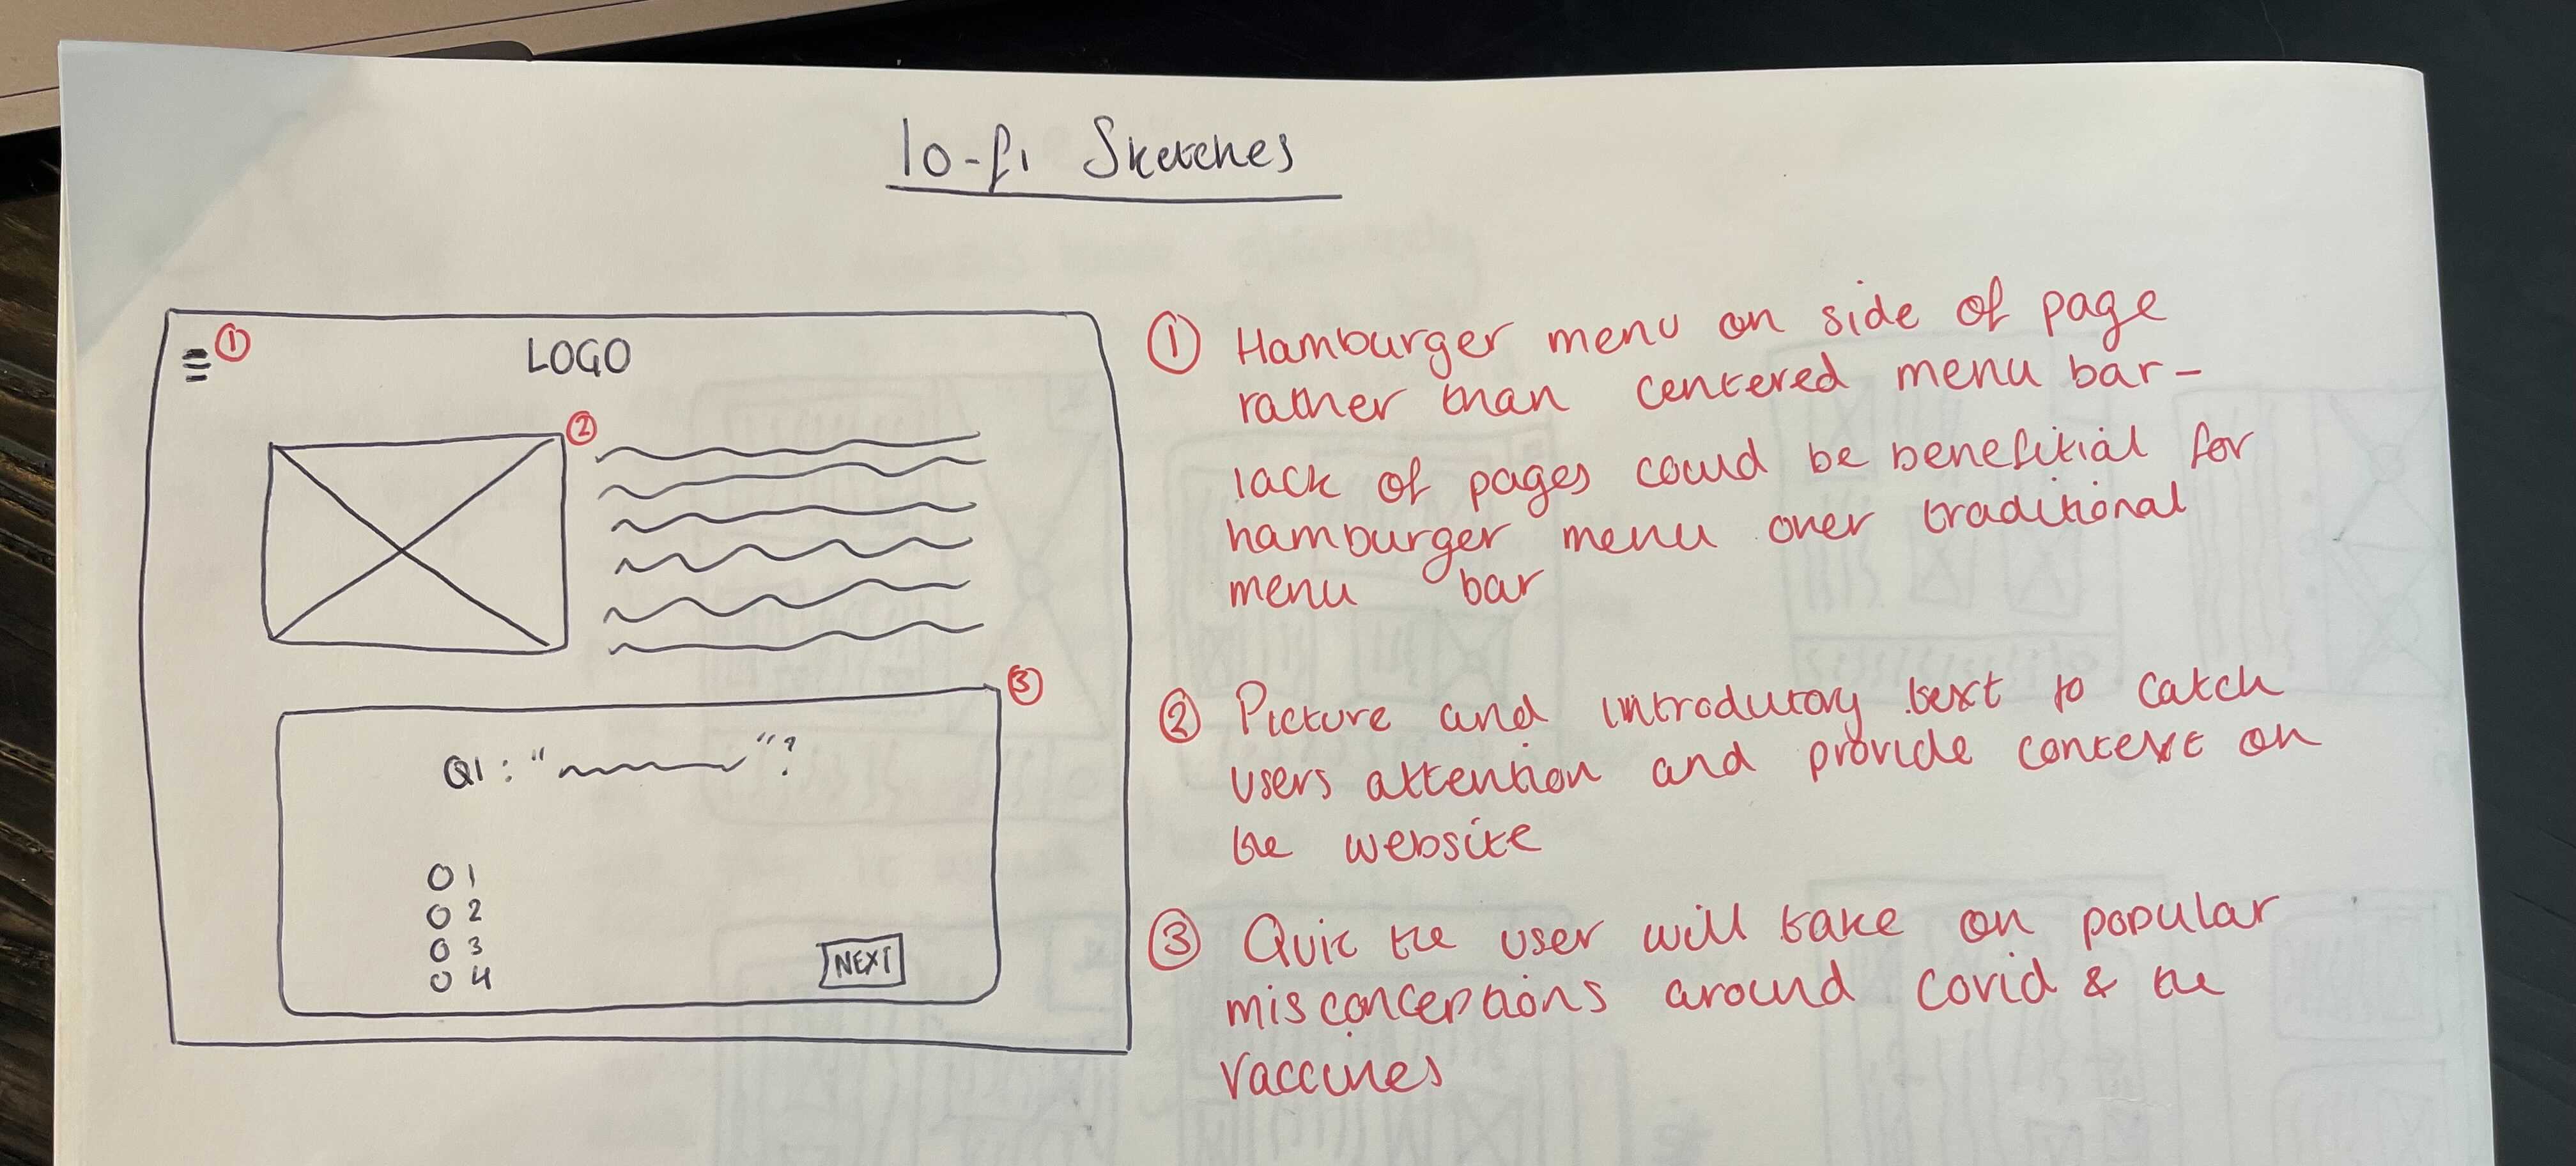 lo-fi Sketches
① LOGO
②
③
Q1 : "        " ?
O 1
O 2
O 3
O 4
NEXT
① Hamburger menu on side of page
rather than centered menu bar -
lack of pages could be benefitial for
hamburger menu over traditional
menu bar
② Picture and introdutory text to catch
users attention and provide context on
the website
③ Quiz the user will take on popular
misconceptions around covid & the
vaccines